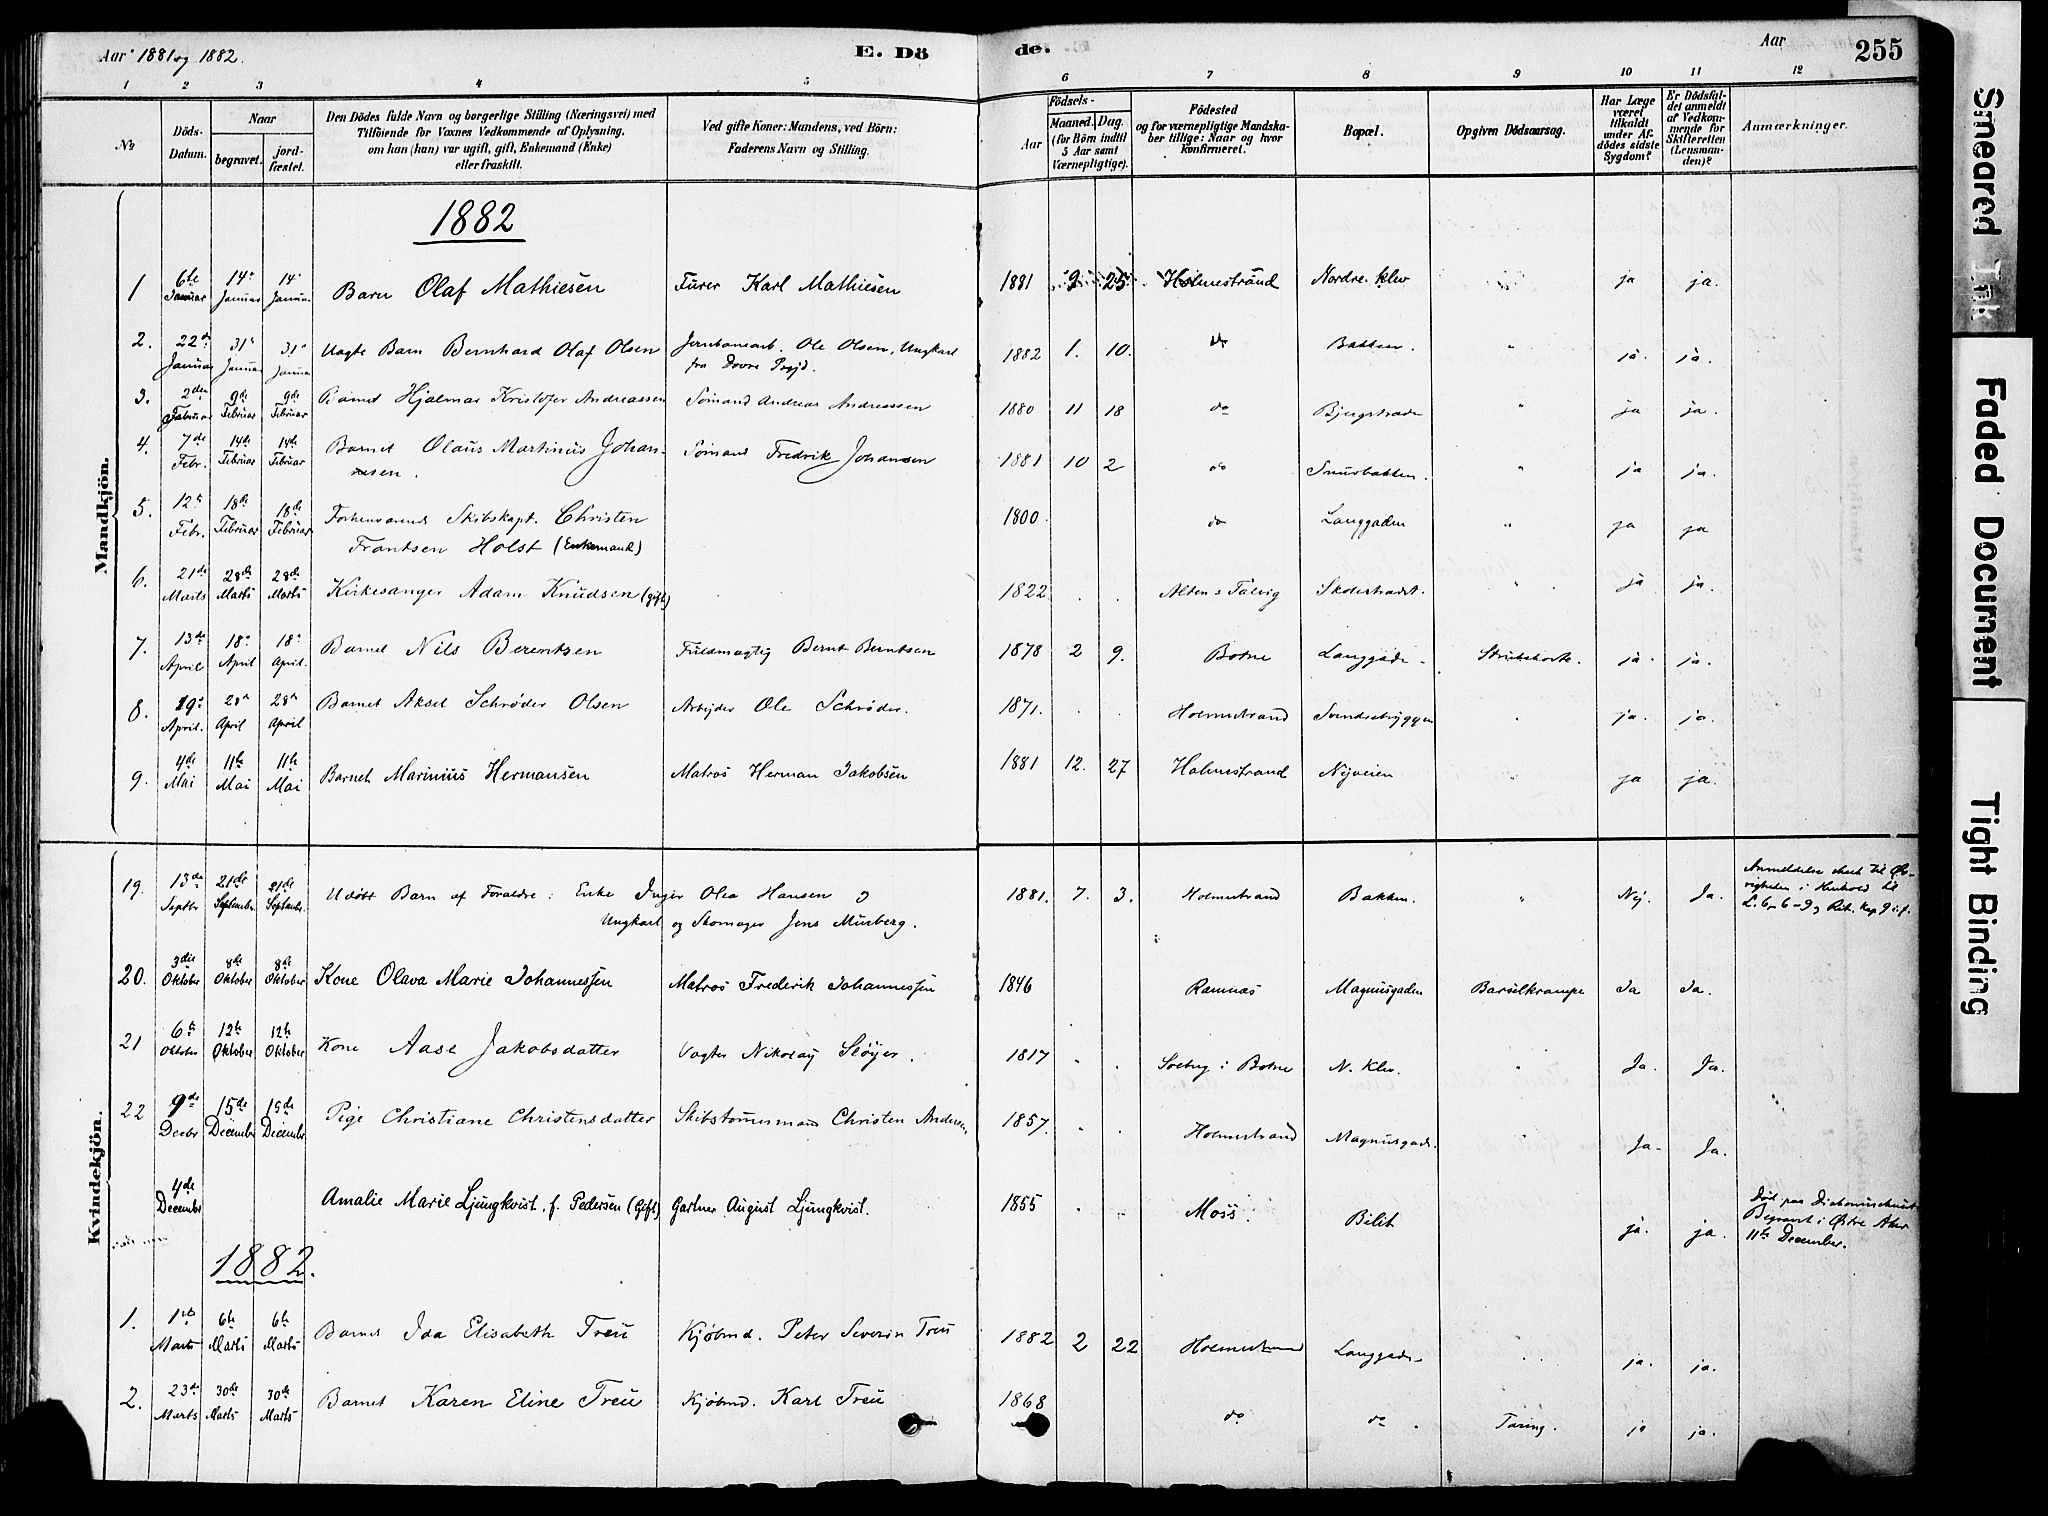 Aar 1881 og 1882.
E. Dö
de.
Aar
255
1 2 3 4 5 6 7 8 9 10 11 12
No
Döds-Datum.
Naar
begravet.
jord-fæstet.
Den Dödes fulde Navn og borgerlige Stilling (Næringsvei) med
Tilföiende for Voxnes Vedkommende af Oplysning,
om han (hun) var ugift, gift, Enkemand (Enke)
eller fraskilt.
Ved gifte Koner: Mandens, ved Börn:
Faderens Navn og Stilling.
Aar
Födsels-
Maaned. Dag.
(for Börn indtil
5 Aar samt
Værnepligtige).
Födested
og for værnepligtige Mandska-
ber tillige: Naar og hvor
konfirmeret.
Bopæl.
Opgiven Dödsaarsag.
Har Læge
været
tilkaldt
under Af-
dödes sidste
Sygdom?
Er Dödsfal-
det anmeldt
af Vedkom-
mende for
Skifteretten
(Lensman-
den)?
Anmærkninger.
Mandkjön.
1882
1 6te Januar 14 Januar 14 Januar Barn Olaf Mathiesen Furer Karl Mathiesen 1881 9 25 Holmestrand Nordre Klev " ja ja.
2. 22 Januar 31 Januar 31 Januar Uægte Barn Bernhard Olaf Olsen Jernbanearb. Ole Olsen, Ungkarl
fra Dovre Prgjd. 1882 1. 10. do Bakken. " ja. ja.
3. 2den Februar 9de Februar 9de Februar Barnet Hjalmar Kristofer Andreassen Sømand Andreas Andreassen 1880 11 18 do " ja ja.
4. 7de Febr. 14de Februar 14de Februar Barnet Olaus Martinus Johan-
nesen. Sømand Fredrik Johansen 1881 10 2 do Snurbakken. " ja ja.
5. 12 Febr. 18de Februar 18de Februar Forhenværend Skibskapt. Christen
Frantsen Holst (Enkemand) 1800. do Langgaden " ja ja
6. 21de Marts 28de Marts 28de Marts Kirkesanger Adam Knudsen (gift) 1822 Alten = Talvig " ja ja.
7. 13de April 18 April 18 April. Barnet Nils Berentsen Fuldmægtig Bernt Berntsen 1878 2 9. Botne Langgade Strubehoste. ja. ja.
8. 19 April. 28 April 28 April Barnet Aksel Schrøder Olsen Arbejder Ole Schrøder. 1871. Holmestrand Svendsebryggen " ja. ja.
9. 4de Mai 11te Mai 11te Mai Barnet Marinius Hermansen Matros Herman Jakobsen 1881 12. 27 Holmestrand Nyveien " ja ja.
Kvindekjön.
19. 13de Septbr 21de September 21de September Udöbt Barn af Forældre: Enke Inger Olea Hansen og
Ungkarl og Skomager Jens Murberg. 1881. 7. 3. Holmestrand Bakken. " Nej. Ja. Anmeldelse skeet til Øv-
righeden i Henhold til
L. 6-6-9 og Rit. Kap 9 i.f.
20. 3die Oktober 8de Oktober 8de Oktober Kone Olava Marie Johannessen Matros Frederik Johannessen 1846 Ramnæs Magnusgaden Barselkrampe Ja Ja.
21 6te Oktober 12te Oktober 12te Oktober Kone Aase Jakobsdatter Vægter Nikolaij Støyer. 1817 Solberg i Botne N. Klev. " Ja. Ja.
22 9de Decbr 15de December 15de December Pige Christiane Christensdatter Skibstømmermand Christen Andersen 1857. Holmestrand Magnusgade. " Ja. Ja.
4de December Amalie Marie Ljungkvist. f. Pedersen (Gift) Gartner August Ljungkvist. 1855 Moss. Bilit ja. ja. Død paa
Begravet i Østre Aker
11te December.
1882.
1. 1ste Marts 6te Marts 6te Marts Barnet Ida Elisabeth Treu Kjøbmd. Peter Severin Treu 1882 2 22 Holmestrand Langgade ja. ja.
2. 23de Marts 30de Marts 30de Marts Barnet Karen Eline Treu Kjøbmd. Karl Treu 1868 do do. Tæring. ja ja.
Smeared Ink
Faded Document
Tight Binding